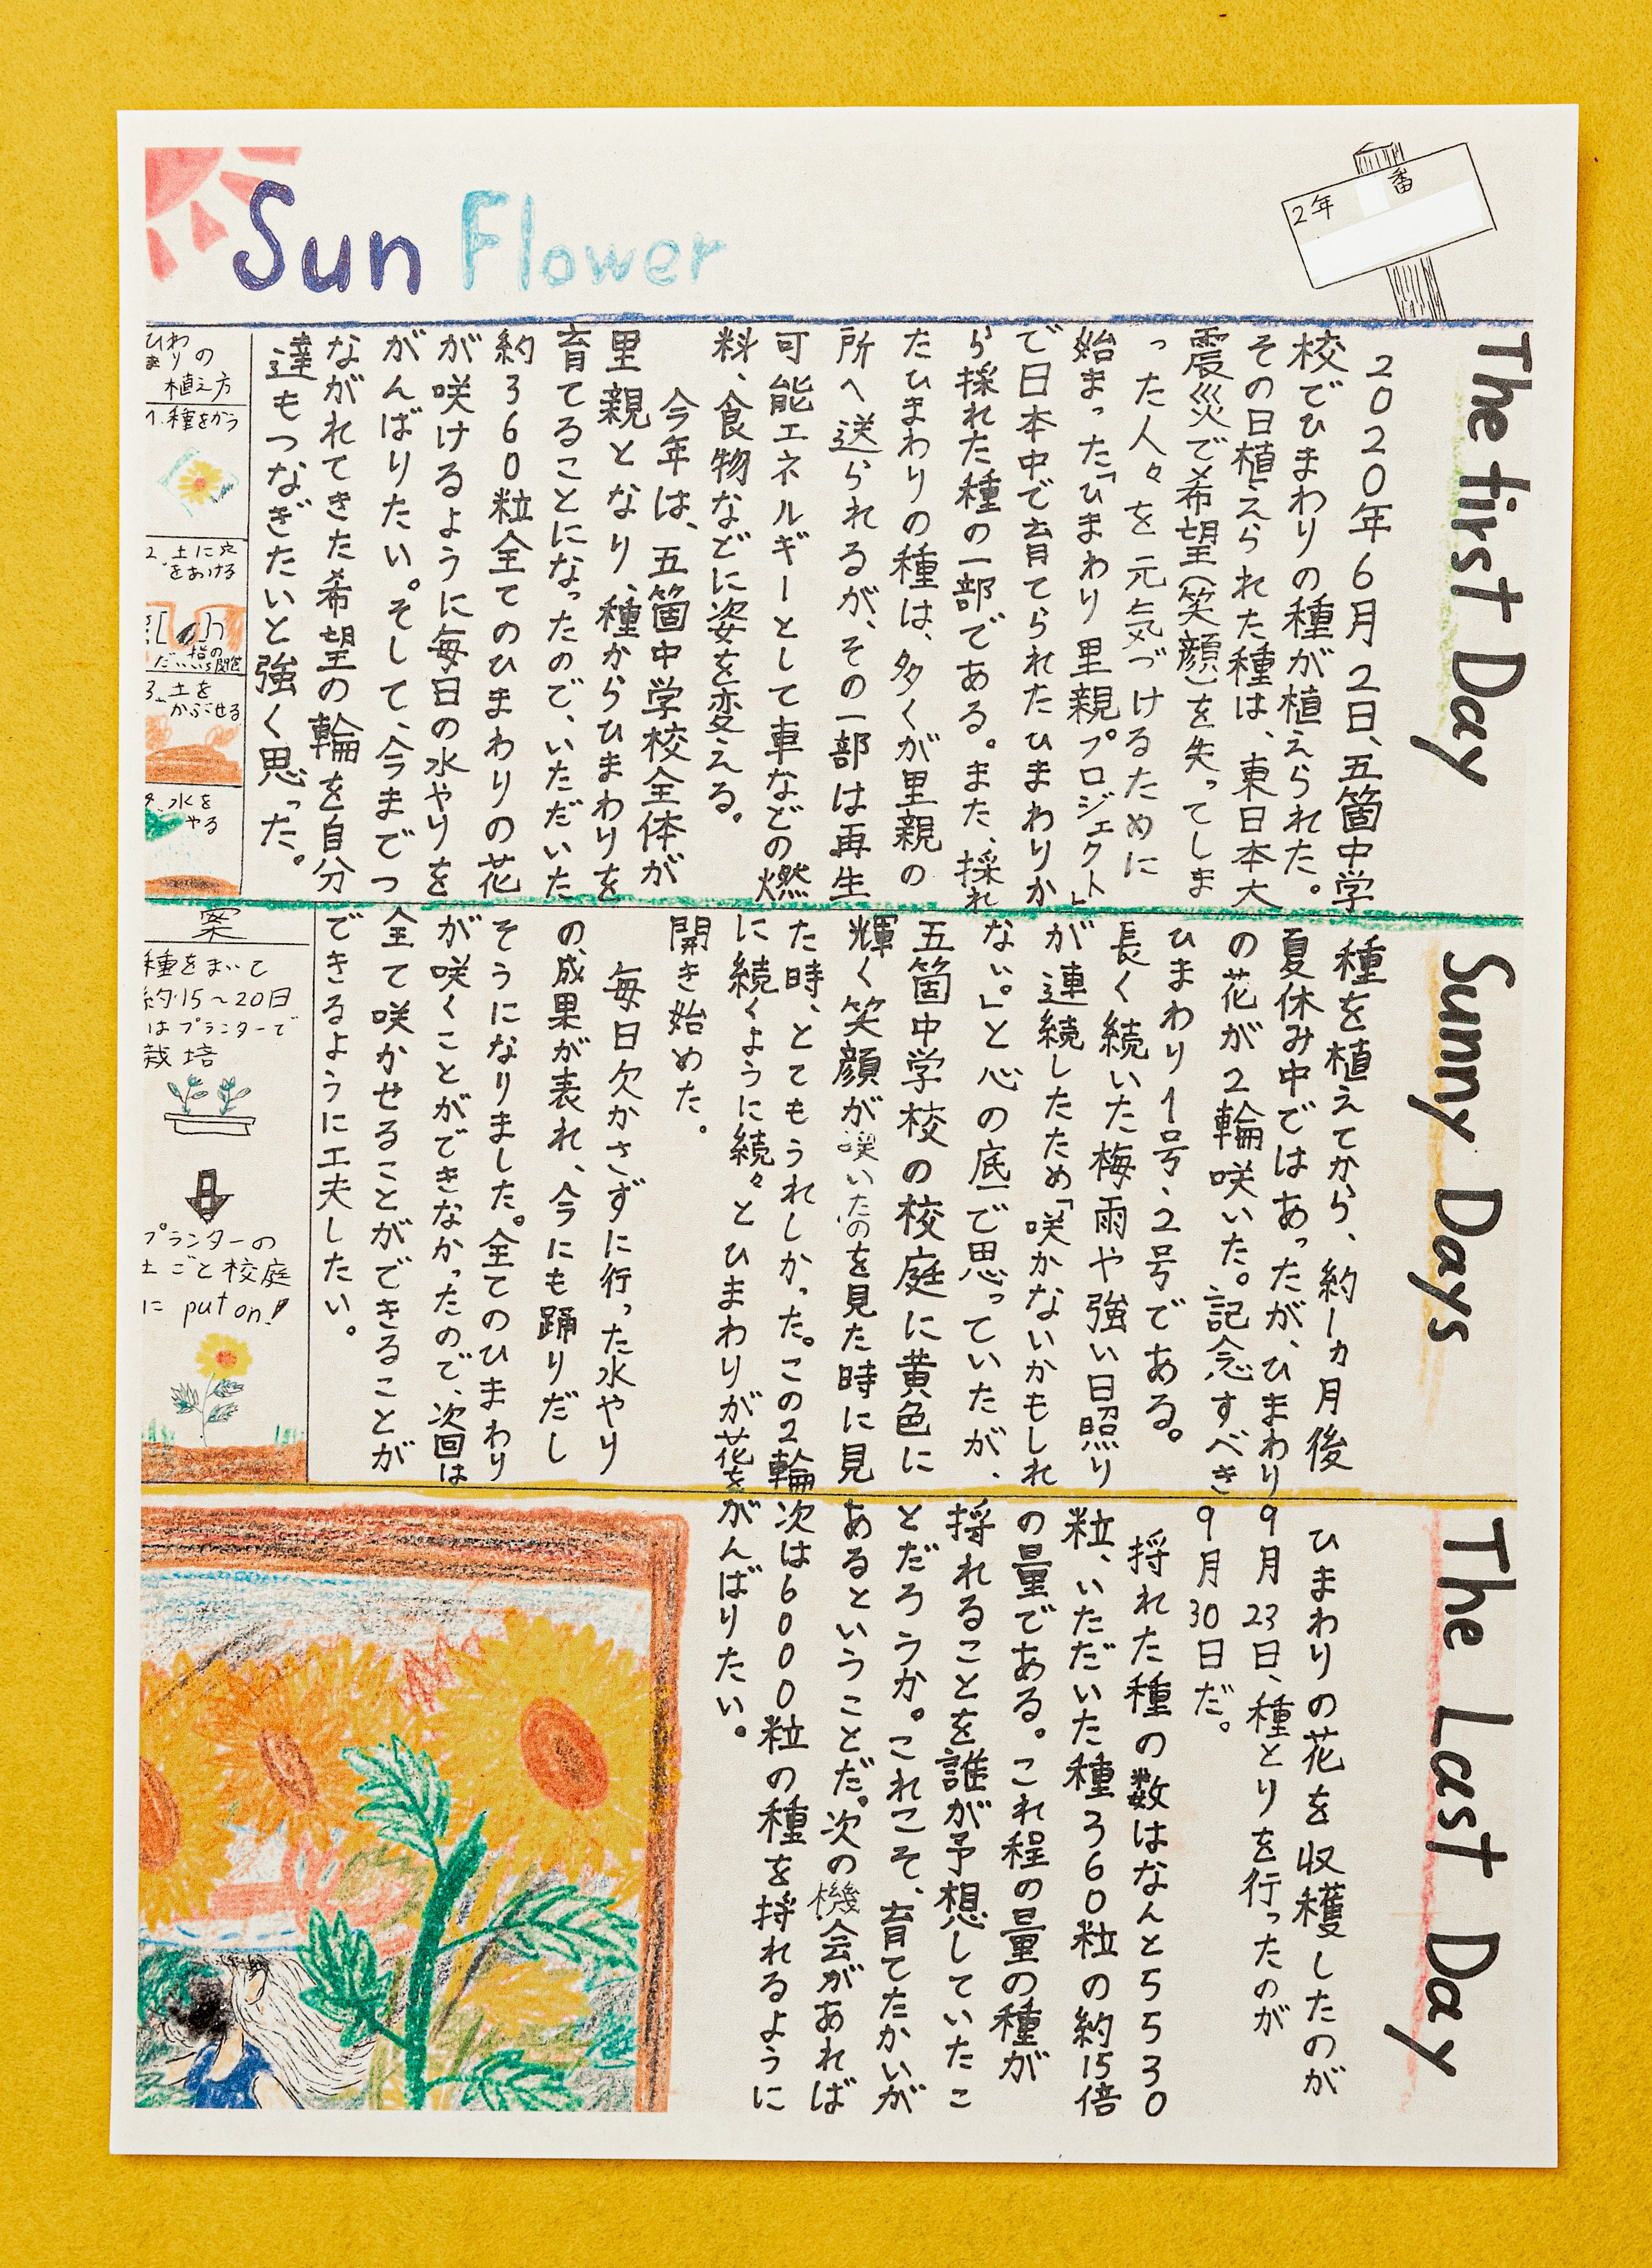 Sun Flower
2年 番
The first Day
2020年6月2日、五箇中学
校でひまわりの種が植えられた。
その日植えられた種は、東日本大
震災で希望(笑顔)を失ってしま
った人々を元気づけるために
始まった「ひまわり里親プロジェクト」
で日本中で育てられたひまわりか
ら採れた種の一部である。また、採れ
たひまわりの種は、多くが里親の
所へ送られるが、その一部は再生
可能エネルギーとして車などの燃
料、食物などに姿を変える。
今年は、五箇中学校全体が
里親となり、種からひまわりを
育てることになったので、いただいた
約360粒全てのひまわりの花
が咲けるように毎日の水やりを
がんばりたい。そして、今までつ
ながれてきた希望の輪を自分
達もつなぎたいと強く思った。
ひまわりの
植え方
1.種をかう
2.土に穴
をあける
だい1指の
第1関節
3.土を
かぶせる
4.水を
やる
Sunny Days
種を植えてから、約1ヵ月後
夏休み中ではあったが、ひまわり
の花が2輪咲いた。記念すべき
ひまわり1号・2号である。
長く続いた梅雨や強い日照り
が連続したため「咲かないかもしれ
ない。」と心の底で思っていたが、
五箇中学校の校庭に黄色に
輝く笑顔が咲いたのを見た時に見
た時、とてもうれしかった。この2輪
に続くように続々とひまわりが花を
開き始めた。
毎日欠かさずに行った水やり
の成果が表れ、今にも踊りだし
そうになりました。全てのひまわり
が咲くことができなかったので、次回は
全て咲かせることができることが
できるように工夫したい。
案
種をまいて
約15〜20日
はプランターで
栽培
プランターの
土ごと校庭
に put on!
The Last Day
ひまわりの花を収穫したのが
9月23日、種とりを行ったのが
9月30日だ。
採れた種の数はなんと5530
粒、いただいた種360粒の約15倍
の量である。これ程の量の種が
採れることを誰が予想していたこ
とだろうか。これこそ、育てたかいが
あるということだ。次の機会があれば
次は6000粒の種を採れるように
がんばりたい。